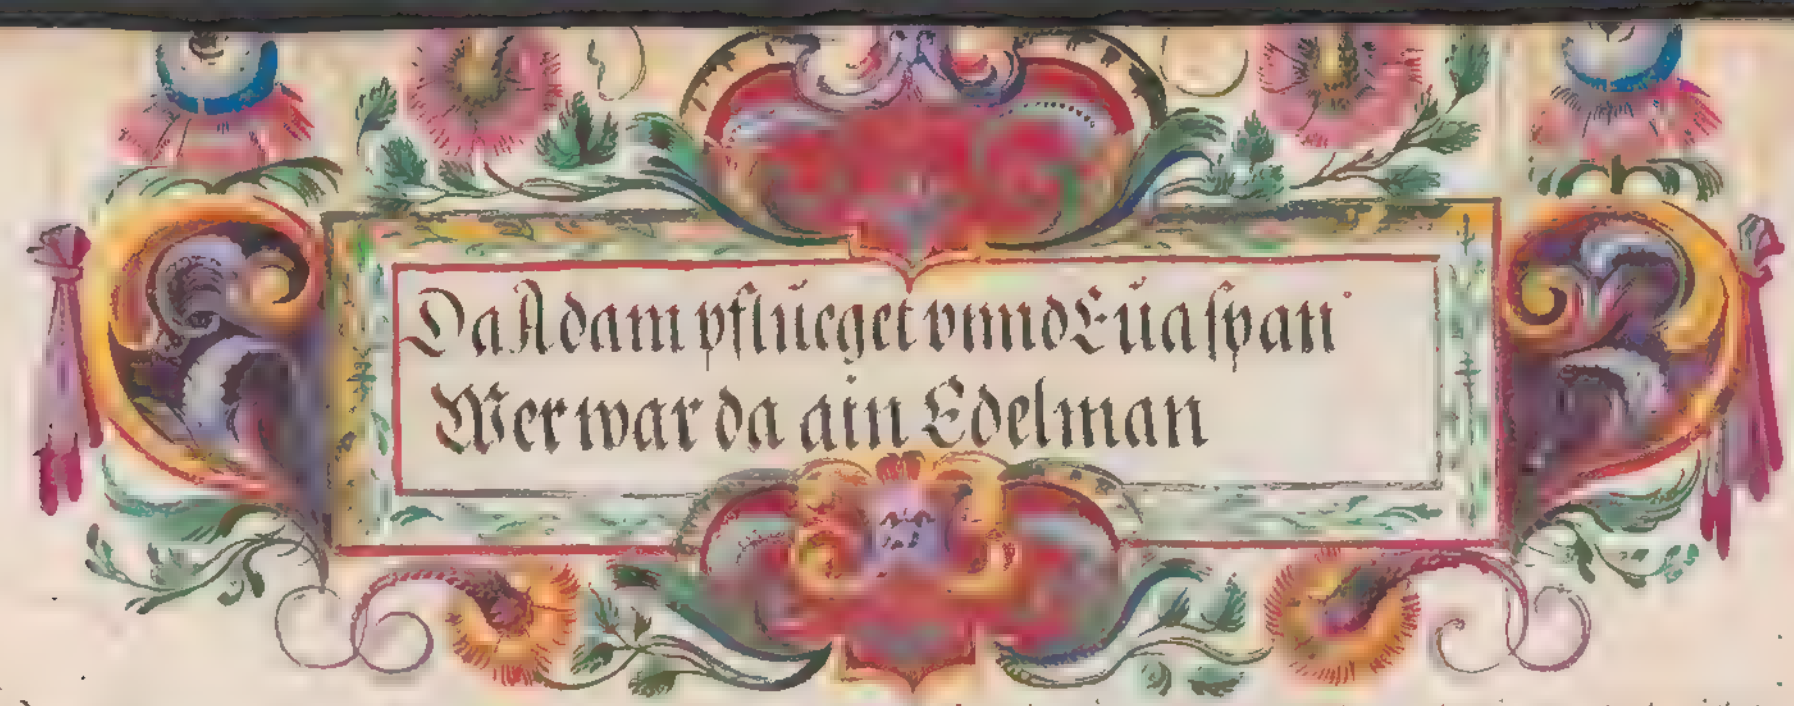 Da Adam pflüeget vnnd Eüa span
Wer war da ain Edelman